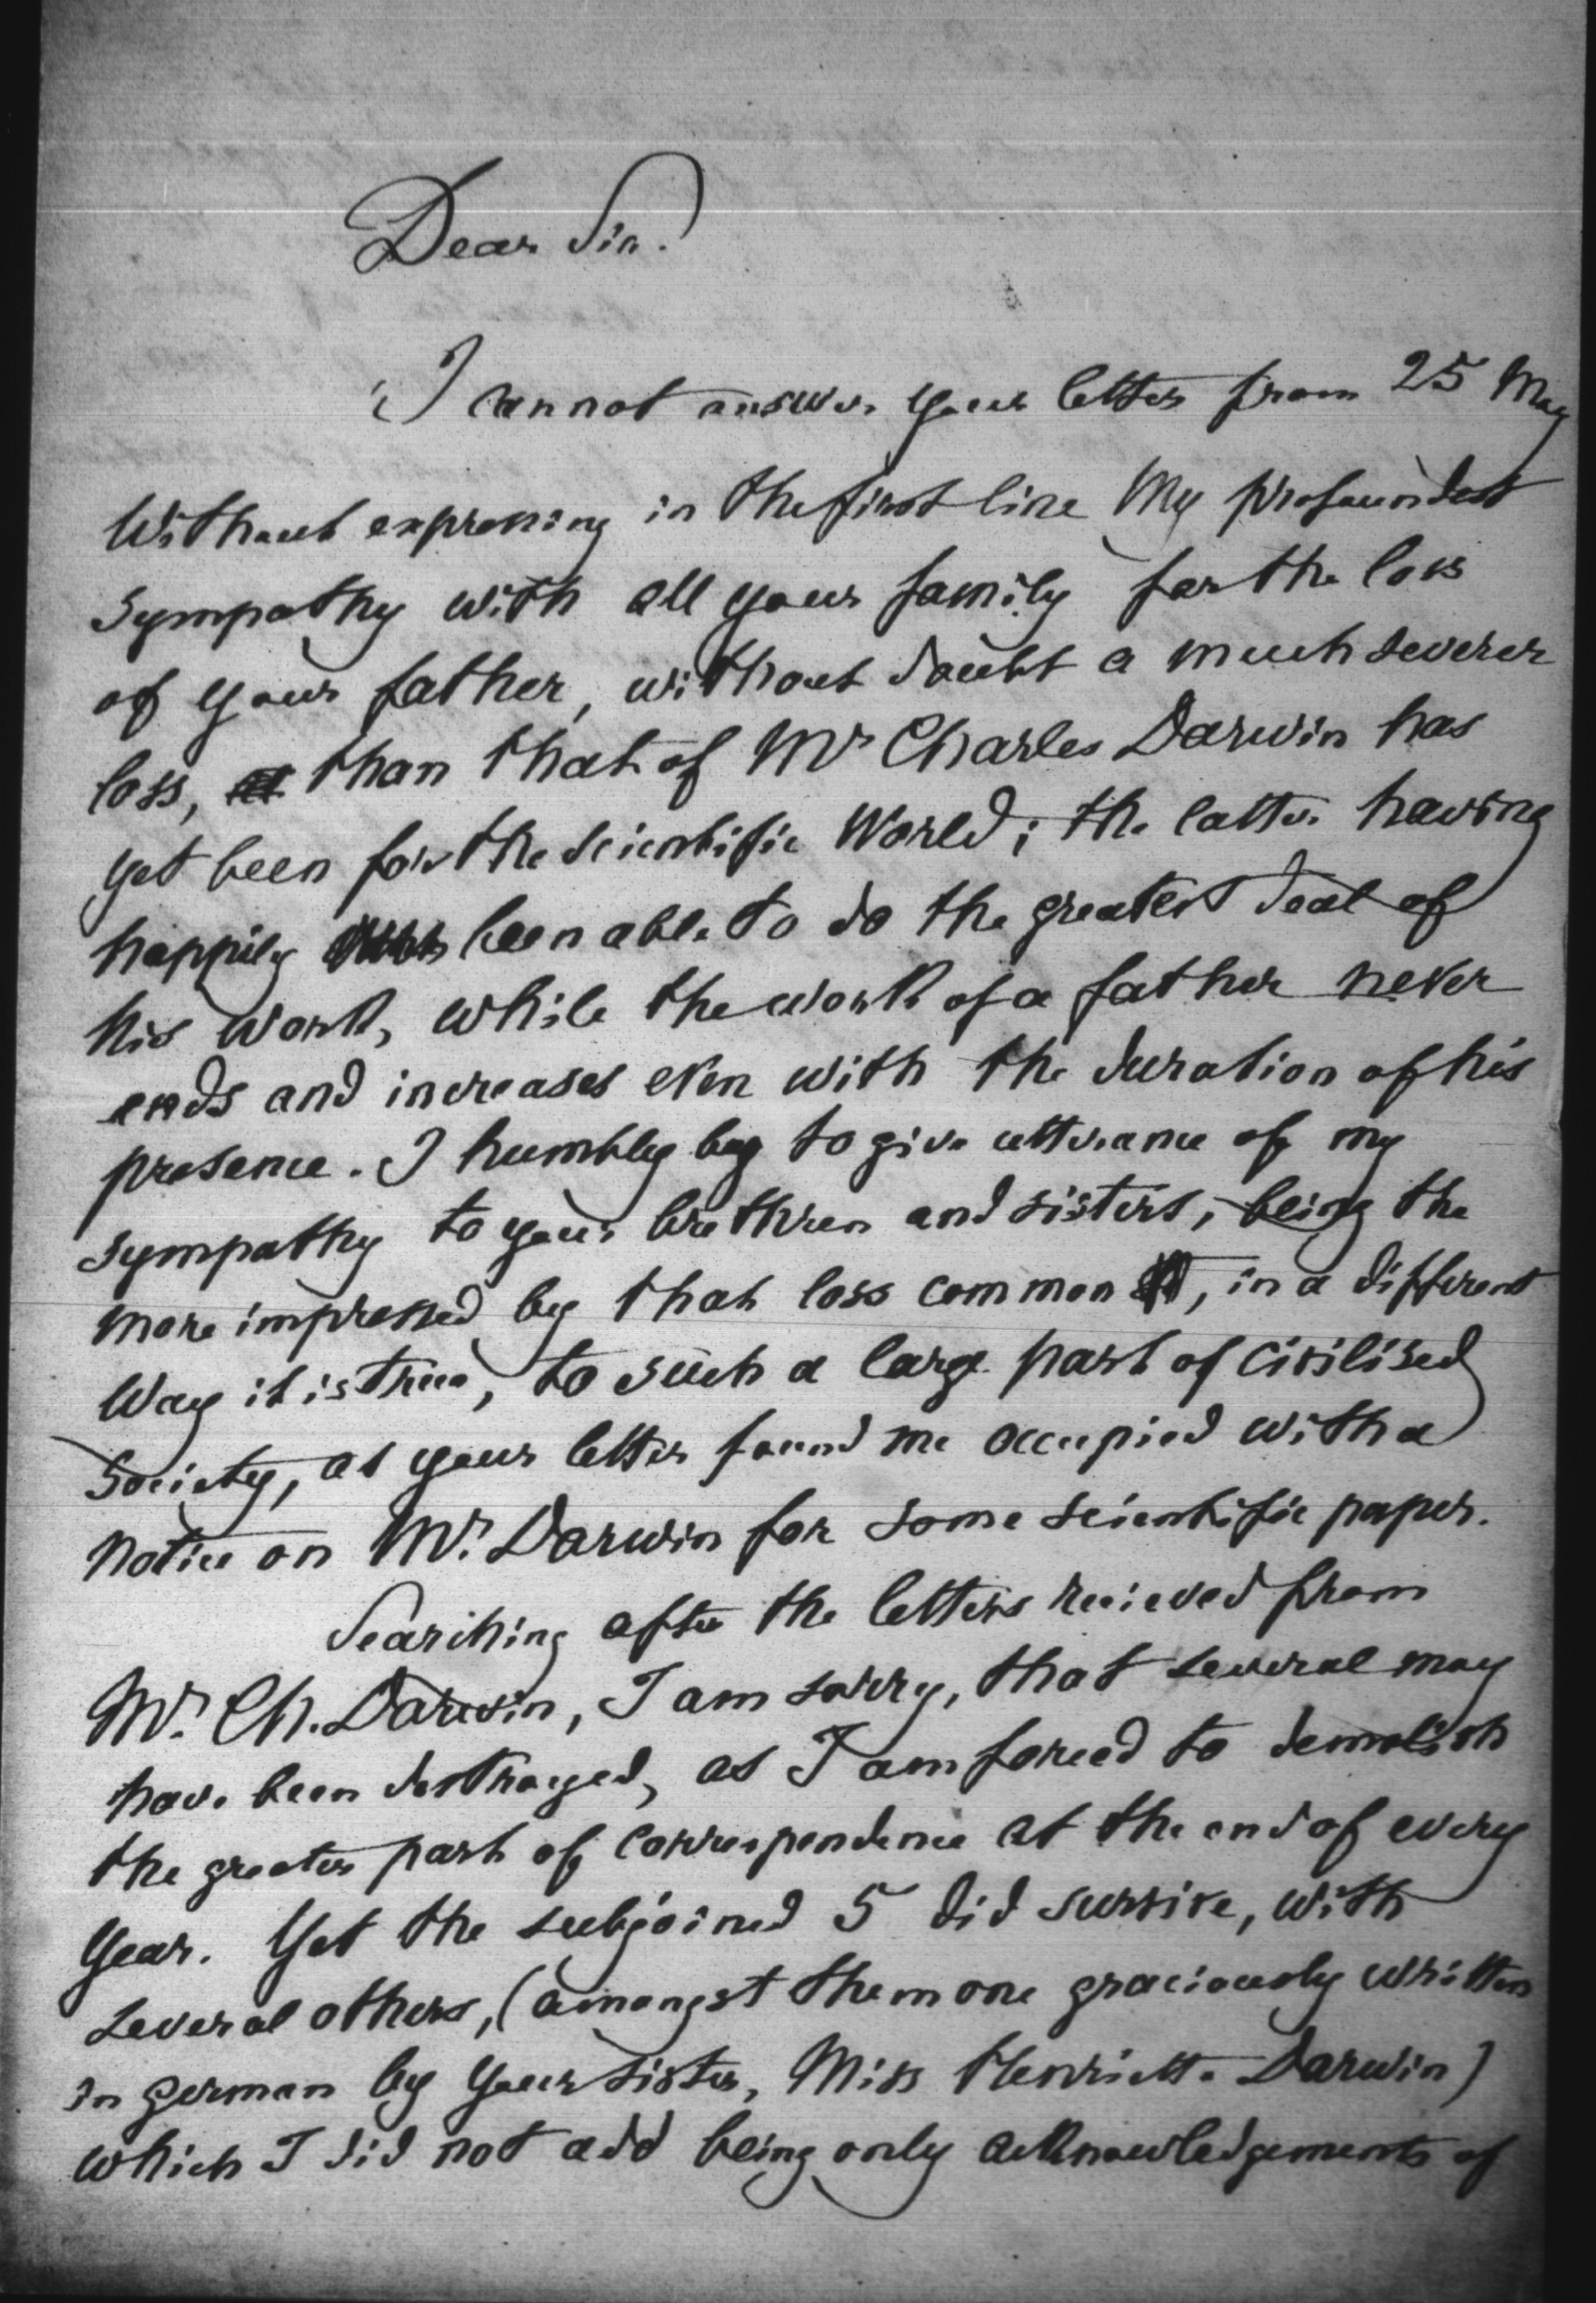 Dear Sir.
I cannot answer your letter from 25 May
without expressing in the first line my profoundest
sympathy with all your family for the loss
of your father, without doubt a much severer
loss, than that of Mr Charles Darwin has
yet been for the scientific World; the latter having
happily been able to do the greatest deal of
his work, while the work of a father never
ends and increases even with the duration of his
presence. I humbly beg to give utterance of my
sympathy to your brethren and sisters, being the
more impressed by that loss common, in a different
way it is true, to such a large part of civilised
Society, as your letter found me occupied with a
notice on Mr. Darwin for some scientific paper.
Searching after the letters recieved from
Mr. Ch. Darwin, I am sorry, that several may
have been destroyed, as I am forced to demolish
the greater part of correspondence at the end of every
year. Yet the subjoined 5 did survive, with
several others, (amongst them one graciously written
in german by your sister, Miss Henriette Darwin)
which I did not add being only acknowledgements of